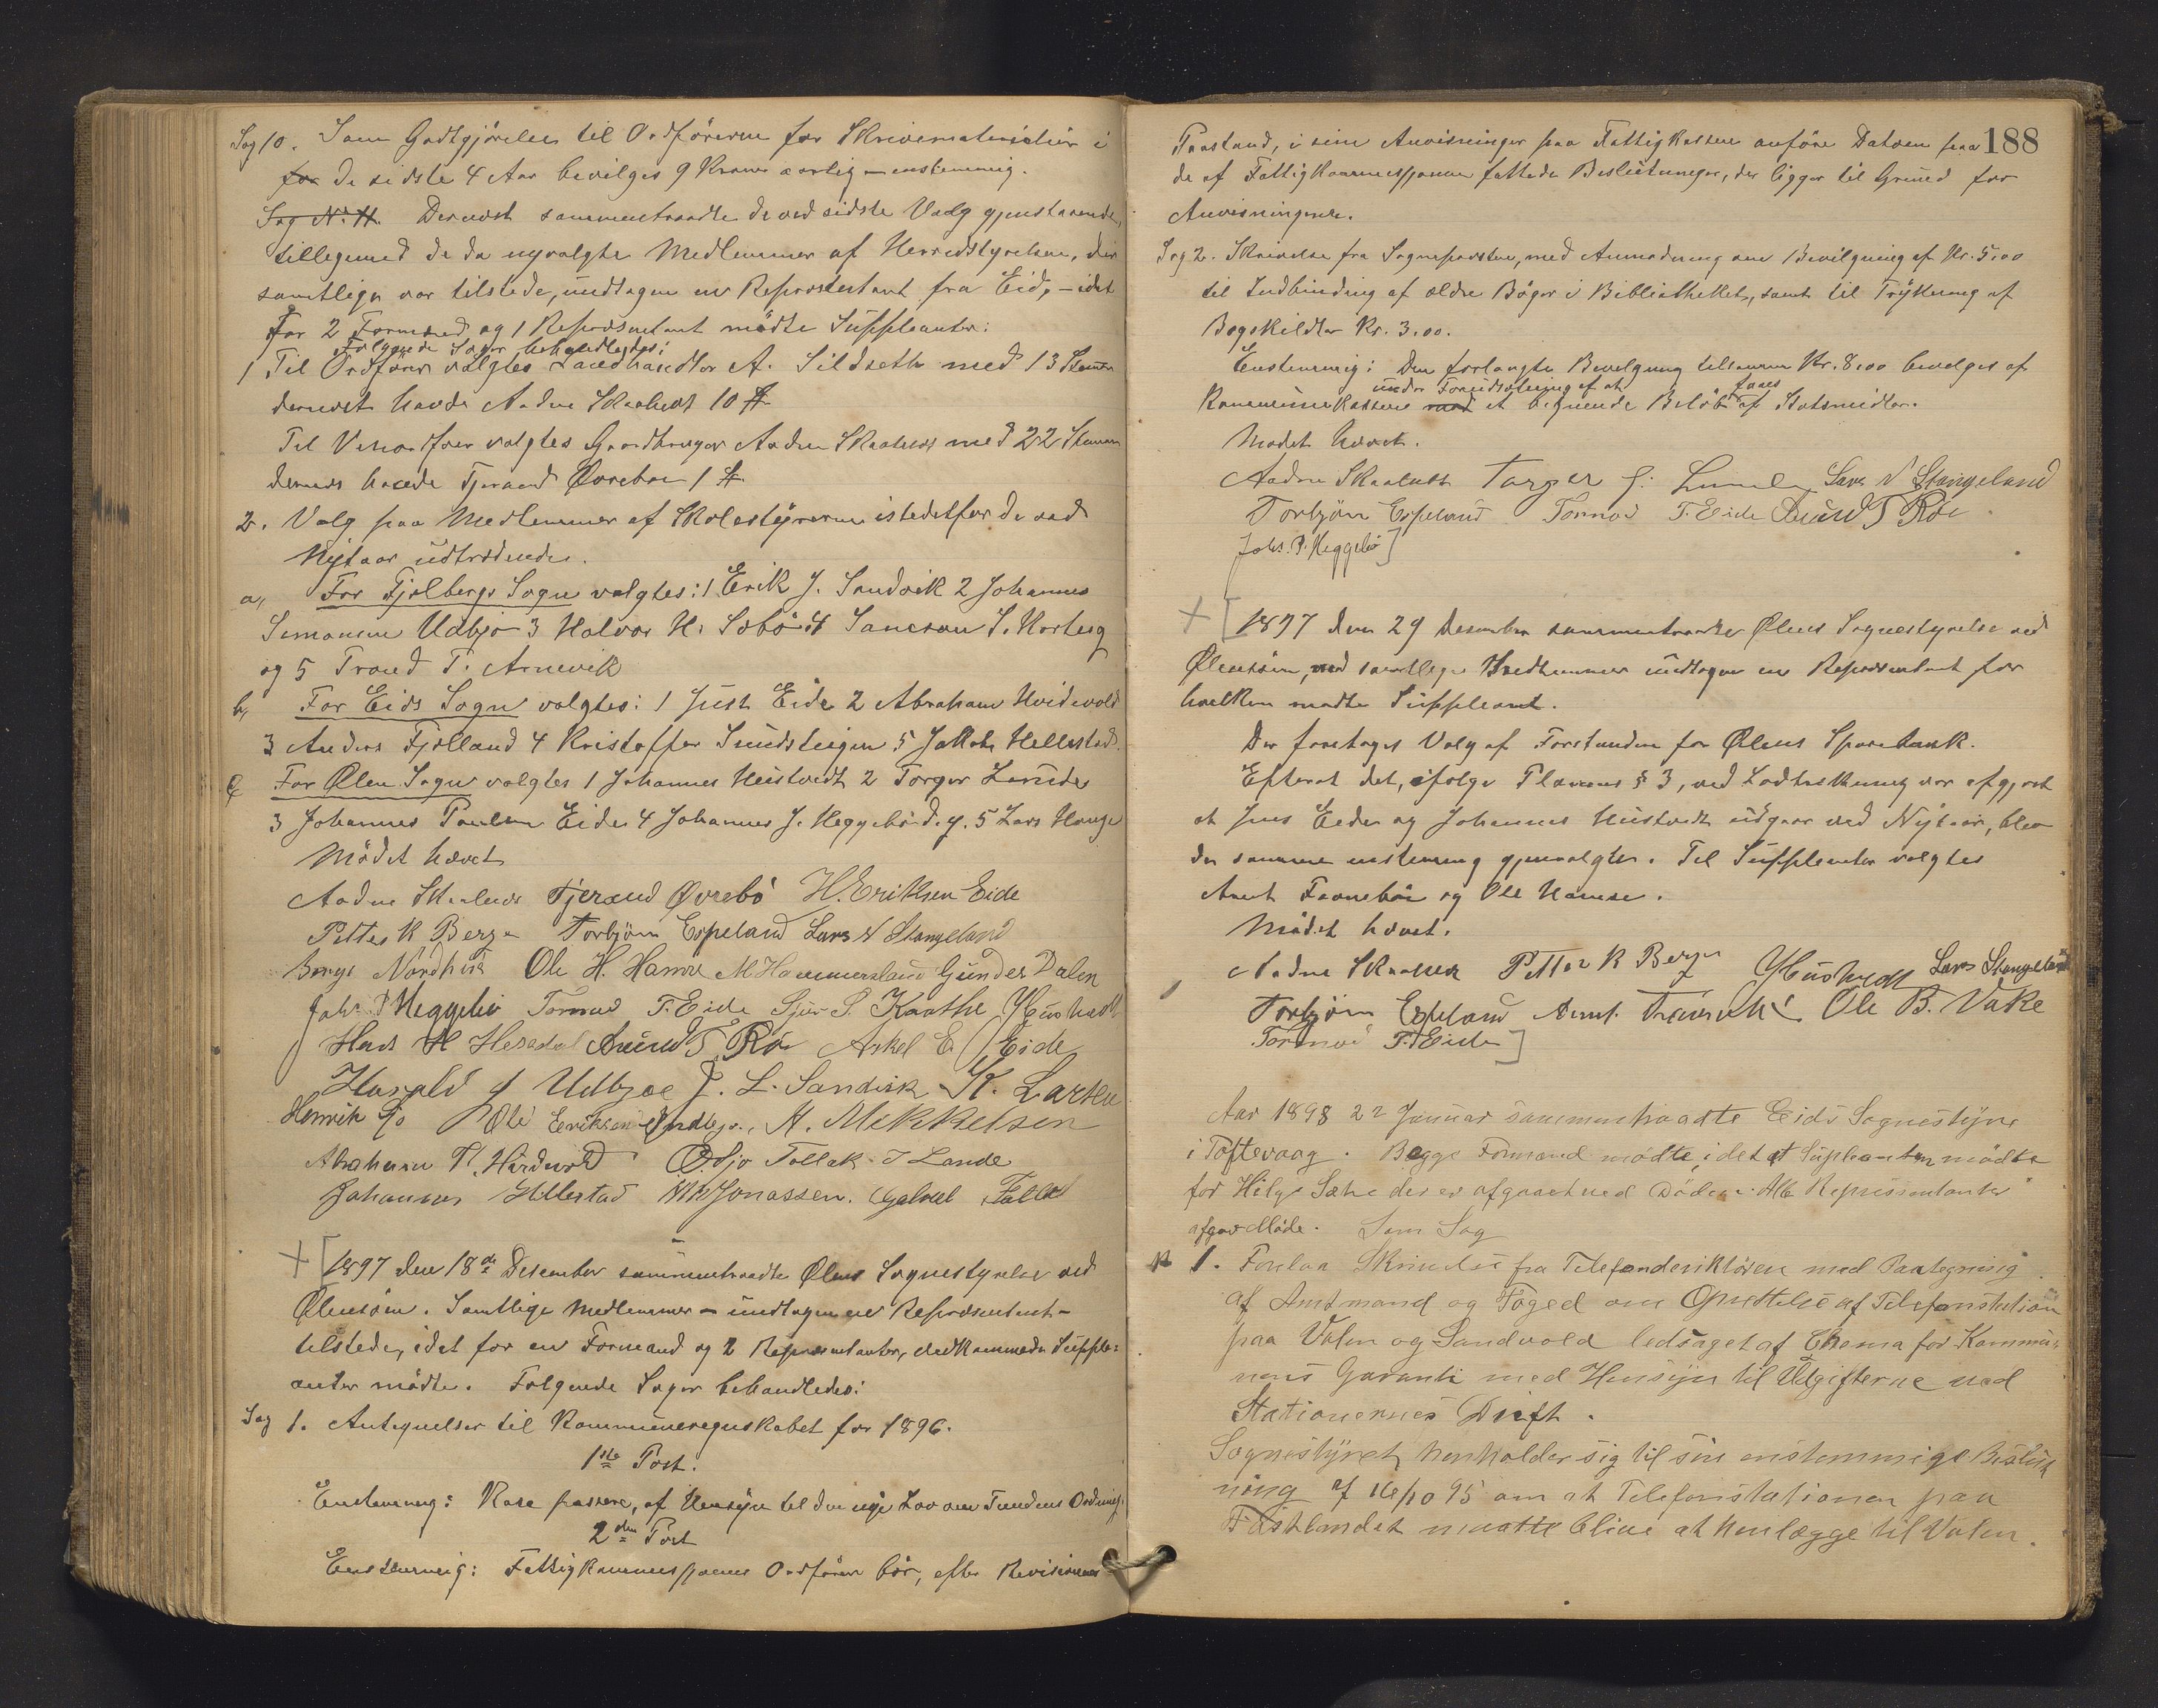 Sag 10. Som Godtgjörelse til Ordföreren for Skrivematerialier i
for de sidste 4 Aar bevilges 9 Kroner aarlig - enstemmig.
Sag N: 11. Dernæst sammentraadte de ved sidste Valg gjenstaaende,
tilligemed de da nyvalgte Medlemmer af Herredstyrelsen, der
samtlige var tilstede, undtagen en Repræsentant fra Eid, - idet
for 2 Formænd og 1 Repræsentant mödte Suppleanter:
Fölgende Sager behandledes:
1 Til Ordförer valgtes Landhandler A. Sildseth med 13 Stemmer
dernæst havde Aadne Skaaluvs 10 St.
Til Viseordförer valgtes Gaardbruger Aadne Skaaluvs med 22 Stemmer
dernæst havde Tjerand Øvrebö 1 St.
2. Valg paa Medlemmer af Skolestyrerne istedetfor de ved
Nytaar udtrædende.
a, For Fjelbergs Sogn valgtes: 1 Erik J. Sandvik 2 Johannes
Simonsen Udbjo 3 Halvor H. Sæbö 4 J. Horteig
og 5 Trond T. Arnevik
b, For Eids Sogn valgtes: 1 Just Eide 2 Abraham Hvidevold
3 Anders Fjelland 4 Kristoffer Sundsteigen 5 Jakob Hellestad.
c, For Ølen Sogn valgtes 1 Johannes Hustvedt 2 Torger Lunde
3 Johannes Paulsen Eide 4 Johannes J. Heggebö d.y. 5 Lars Hauge
Mödet hævet
Aadne Skaaluvs Tjerand Øvrebö H. Eriksen Eide
Petter K Berge Torbjörn Espeland Lars N Stangeland
Börge Nordhus Ole H. Hamre M. Hammersland Gunder Dalen
Johs. P Heggebö Tormod T. Eide Sjur S. Kaathe J Hustvedt
Hans H Amund T Röe Askel E. Eide
Harald J Udbjoe J. L. Sandvik K. Larsen
Henrik Ole Eriksen A. Mekkelsen
Abraham T. Hvidevold O. Sjo Tollak J Lande
Johannes Hellestad Jonassen. Gabriel
+ [1897 den 18de Desember sammentraadte Ølens Sognestyrelse ved
Ølensöen. Samtlige Medlemmer - undtagen en Repræsentant -
tilstede, idet for en Formand og 2 Repræsentanter, vedkommende Supple-
anter mödte. Fölgende Sager behandledes:
Sag 1. Antegnelser til Kommuneregnskabet for 1896.
1ste Post.
Enstemmig: Kase passere, af Hensyn til den nye Lov om Tundens Ordning.
2den Post
Enstemmig: Fattigkommissjonens Ordförer bör, efter Revisionens
188
Paastand, i sine Anvisninger paa Fattigkassen anföre Datoen paa
de af Fattigkommissjonen fattede Beslutninger, der ligger til Grund for
Anvisningerne.
Sag 2. Skrivelse fra Sognepresten, med Anmodning om Bevilgning af Kr. 5.00
til Indbinding af ældre Böger i Bibliotheket, samt til Trykning af
Bogskildter Kr. 3.00.
Enstemmig: Den forlangte Bevilgning tilsammen Kr. 8.00 bevilges af
under Forudsætning af at faaes
Kommunekassen mod et lignende Belöb af Statsmidler.
Mödet hævet.
Aadne Skaaluvs Torger J. Lunde Lars N Stangeland
Torbjörn Espeland Tormod T. Eide Amund T Röe
Johs. P. Heggebö]
+ [1897 den 29 Desember sammentraadte Ølens Sognestyrelse ved
Ølensöen, med samtlige Medlemmer undtagen en Repræsentant for
hvilken mödte Suppleant.
Der foretoges Valg af Forstander for Ølens Sparebank.
Efterat det, ifölge Planens § 3, ved Lodtrækning var afgjort
at Jens Eide og Johannes Hustvedt udgaar ved Nytaar, blev
de samme enstemmig gjenvalgte. Til Suppleanter valgtes
Amt Framnæs og Ole Hamre.
Mödet hævet.
Aadne Skaaluvs Petter K Berge J Hustvedt Lars Stangeland
Torbjörn Espeland Ole B. Vake
Tormod T. Eide]
Aar 1898 22 Januar sammentraadte Eids Sognestyre
i Toftevaag. Begge Formænd mödte, idet at Supleanten mödte
for Helge Sæhe der er afgaaet ved Döden. Alle Repræsentanter
afgav Möde. Som Sag
1. Forelaa Skrivelse fra Telefondirektören med Paategning
af Amtmand og Foged om Oprettelse af Telefonstation
paa Valen og Sandvold ledsaget af Chema for Kommu-
nens Garanti med Hensyn til Udgifterne ved
Stationernes Drift.
Sognestyret henholder sig til sin enstemmige Beslut
ning af 16/10 95 om at Telefonstationen paa
Fastlandet maatte blive at henlægge til Valen.